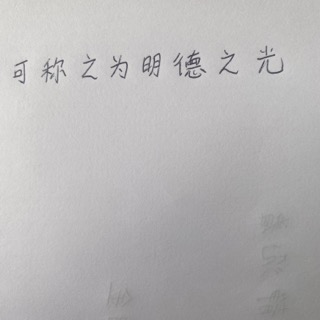 可称之为明德之光